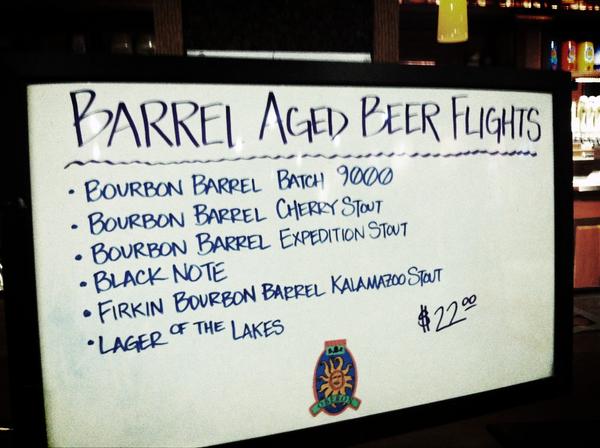 BARREL AGED BEER FLIGHTS
• BOURBON BARREL BATCH 9000
• BOURBON BARREL CHERRY STOUT
• BOURBON BARREL EXPEDITION STOUT
• BLACK NOTE
• FIRKIN BOURBON BARREL KALAMAZOO STOUT
• LAGER OF THE LAKES
$22.00
OBERON